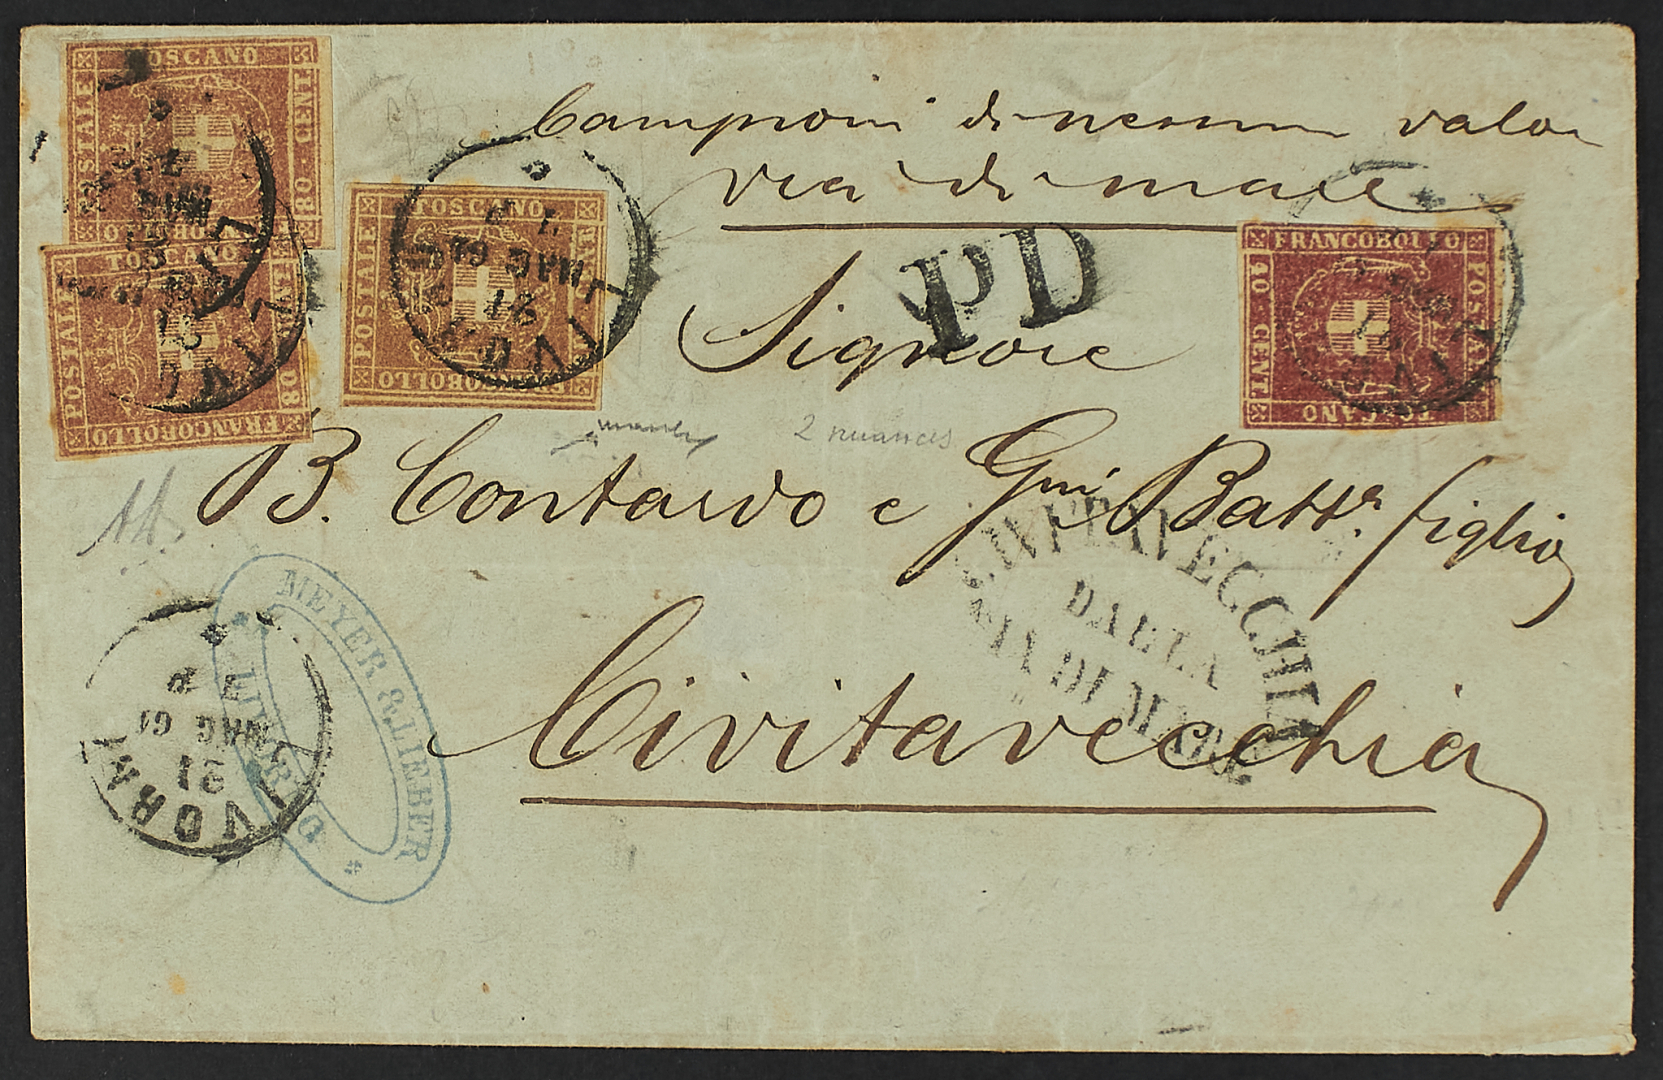 Campioni di nessun valor
via di mare
Signore
B. Contardo e Gmi Battr. figlio
Civitavecchia
PD
CIVITAVECCHIA
DALLA
VIA DI MARE
FRANCOBOLLO
POSTALE
TOSCANO
80 CENT.
FRANCOBOLLO
POSTALE
TOSCANO
CENT.
80
FRANCOBOLLO
POSTALE
TOSCANO
FRANCOBOLLO
POSTALE
TOSCANO
40 CENT.
LIVORNO
21
MAG 61
LIVORNO
21
MAG 61
LIVORNO
LIVORNO
MEYER & LIEBER
LIVORNO
2 nuances